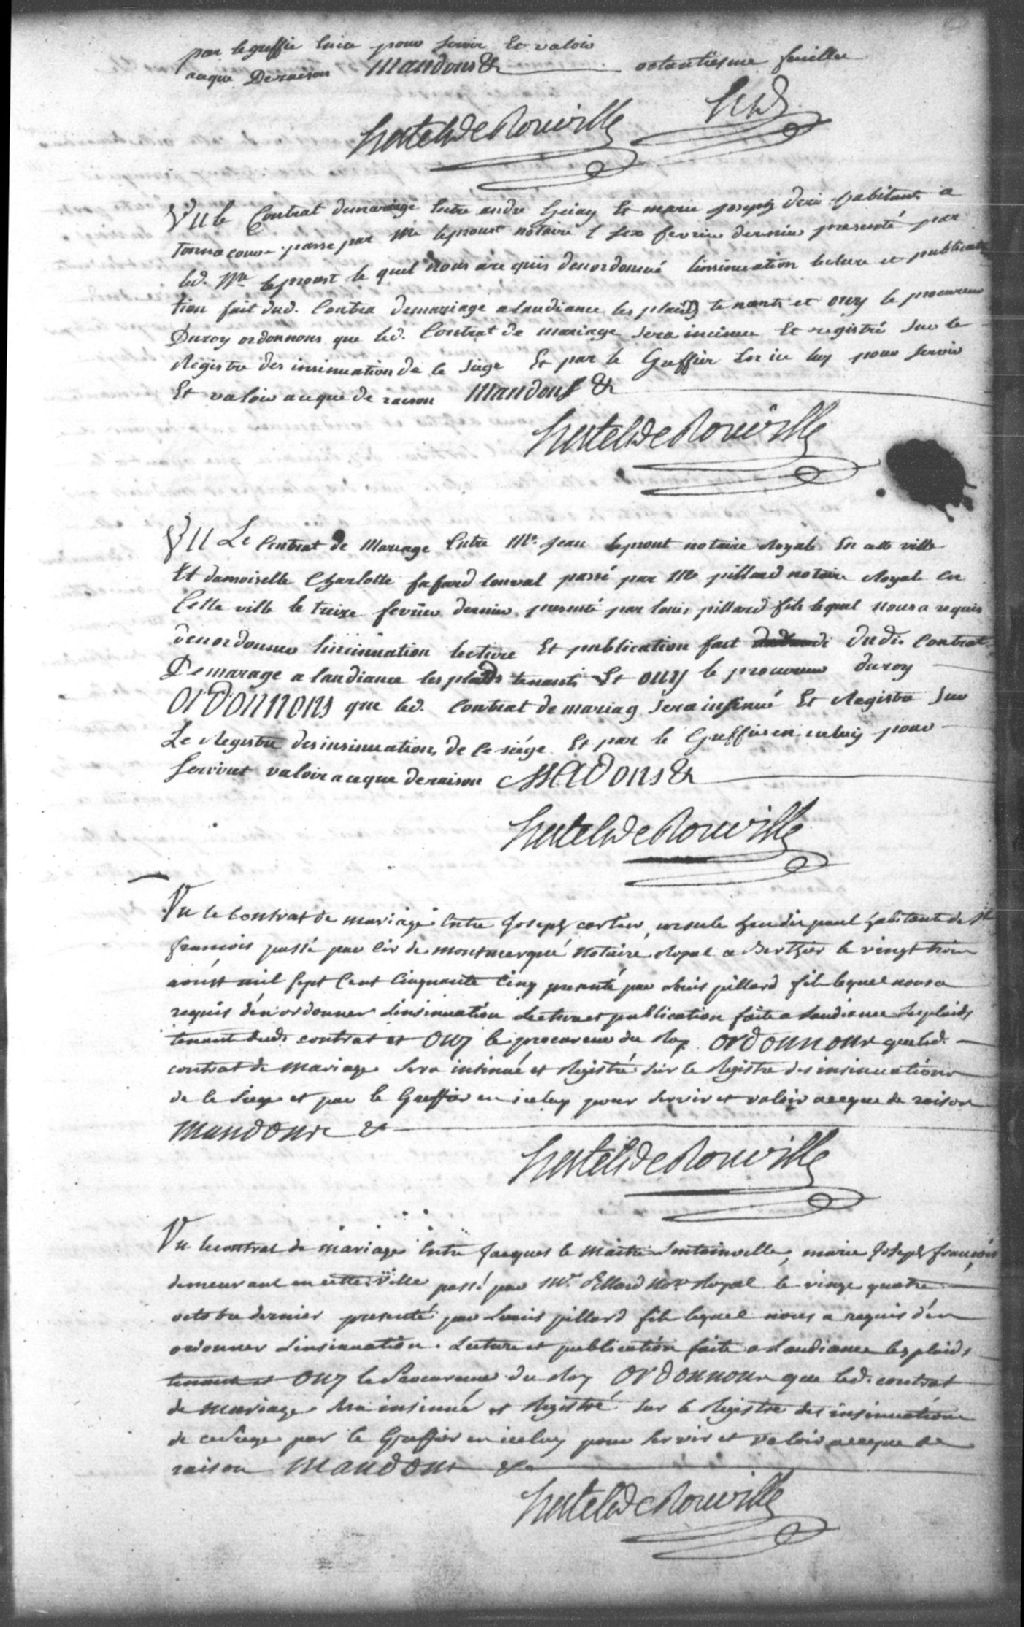 par le greffie en ice pour servir Et valoir
aceque De raison Mandons &
octantiesme feuillet
Hertel de Rouville
VU le Contrat demariage Entre andre et marie Joseph habitants a
passé par Me leproust notaire l six fevrier dernier presenté par
led. Me leproust le quel Nous a re quis denordonné linsinuation lecture et publica
tion fait dud. Contra demariage a laudiance les plaids tenants et ouy le procureur
Duroy ordonnons que led. Contrat de mariage sera insinué Et registré sur le
Registre des insinuations de ce siege Et par le Greffier En ice luy pour servir
Et valoir aceque de raison Mandons &
Hertel de Rouville
VU Le Contrat de Mariage Entre Mr. Jean leproust notaire Royal En cette ville
Et damoiselle Charlotte fafard lonval passé par Me pillard notaire Royal en
Cette ville le treize fevrier dernier presenté par louis pillard fils lequel nous a requis
denordonner linsinuation lecture Et publication fait dudit Contrat
De mariage a laudiance les plaids tenants Et ouy le procureur duroy
ORDONNONS que led. Contrat de mariag sera insinué Et Registré sur
Le Registre des insinuations de ce siége Et par le Greffier en iceluy pour
Servir et valoir aceque de raison MADONS &
Hertel de Rouville
Vu le Contrat de mariage Entre Joseph cartier ursule habitant de St
françois passé par de montmerqué Notaire Royal a Berthier le vingt trois
aoust mil sept Cent Cinquante Cinq presenté par louis pillard fils lequel nous a
requis d'en ordonner Linsinuation Lecture et publication faite a Laudiance Les plaids
tenant dud. contrat et Ouy le procureur du Roy ORDONNONS que led.
contrat de Mariage Sera insinué et Régistré sur le Régistre des insinuations
de ce Siege et par le Greffier en iceluy pour servir et valoir aceque de raison
MANDONS &
Hertel de Rouville
Vu le contrat de mariage Entre Jacques le Maitre Lotainville, marie Joseph françois
demeurant en cette Ville passé par Mr. Pillard Nore Royal le vingt quatre
octobre dernier presenté par Louis pillard fils lequel nous a requis d'en
ordonner Linsinuation. Lecture et publication faite a Laudiance les plaids
tenant et Ouy le Procureur Du Roy ORDONNONS que led. contrat
de Mariage Sera insinué et Régistré sur le Régistre des insinuations
de ce Siege par le Greffier en iceluy pour Servir et valoir aceque de
raison MANDONS &
Hertel de Rouville